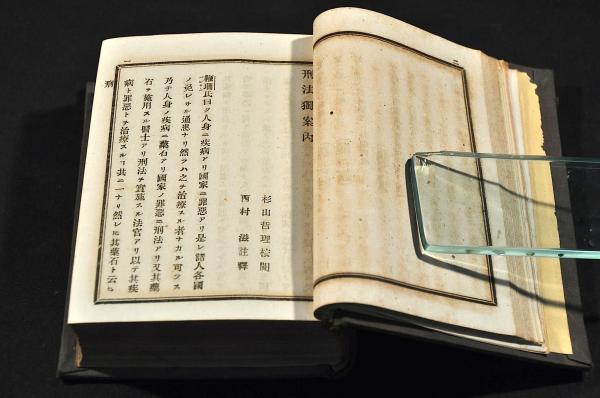 刑法獨案內
杉山哲理校閲
西村 滋註釋
人身ニ疾病アリ國家ニ罪惡アリ是レ諸人各國
ノ免レサル通患ナリ然ラハ之ヲ治療スル者ナカル可ラス
乃チ人身ノ疾病ニ藥石アリ國家ノ罪惡ニ刑法アリ又其藥
石ヲ施用スル醫士アリ刑法ヲ實施スル法官アリ以テ其疾
病ト罪惡トヲ治療スルヿ其ニ一ナリ然レ𪜈其藥石ト云ヒ
刑